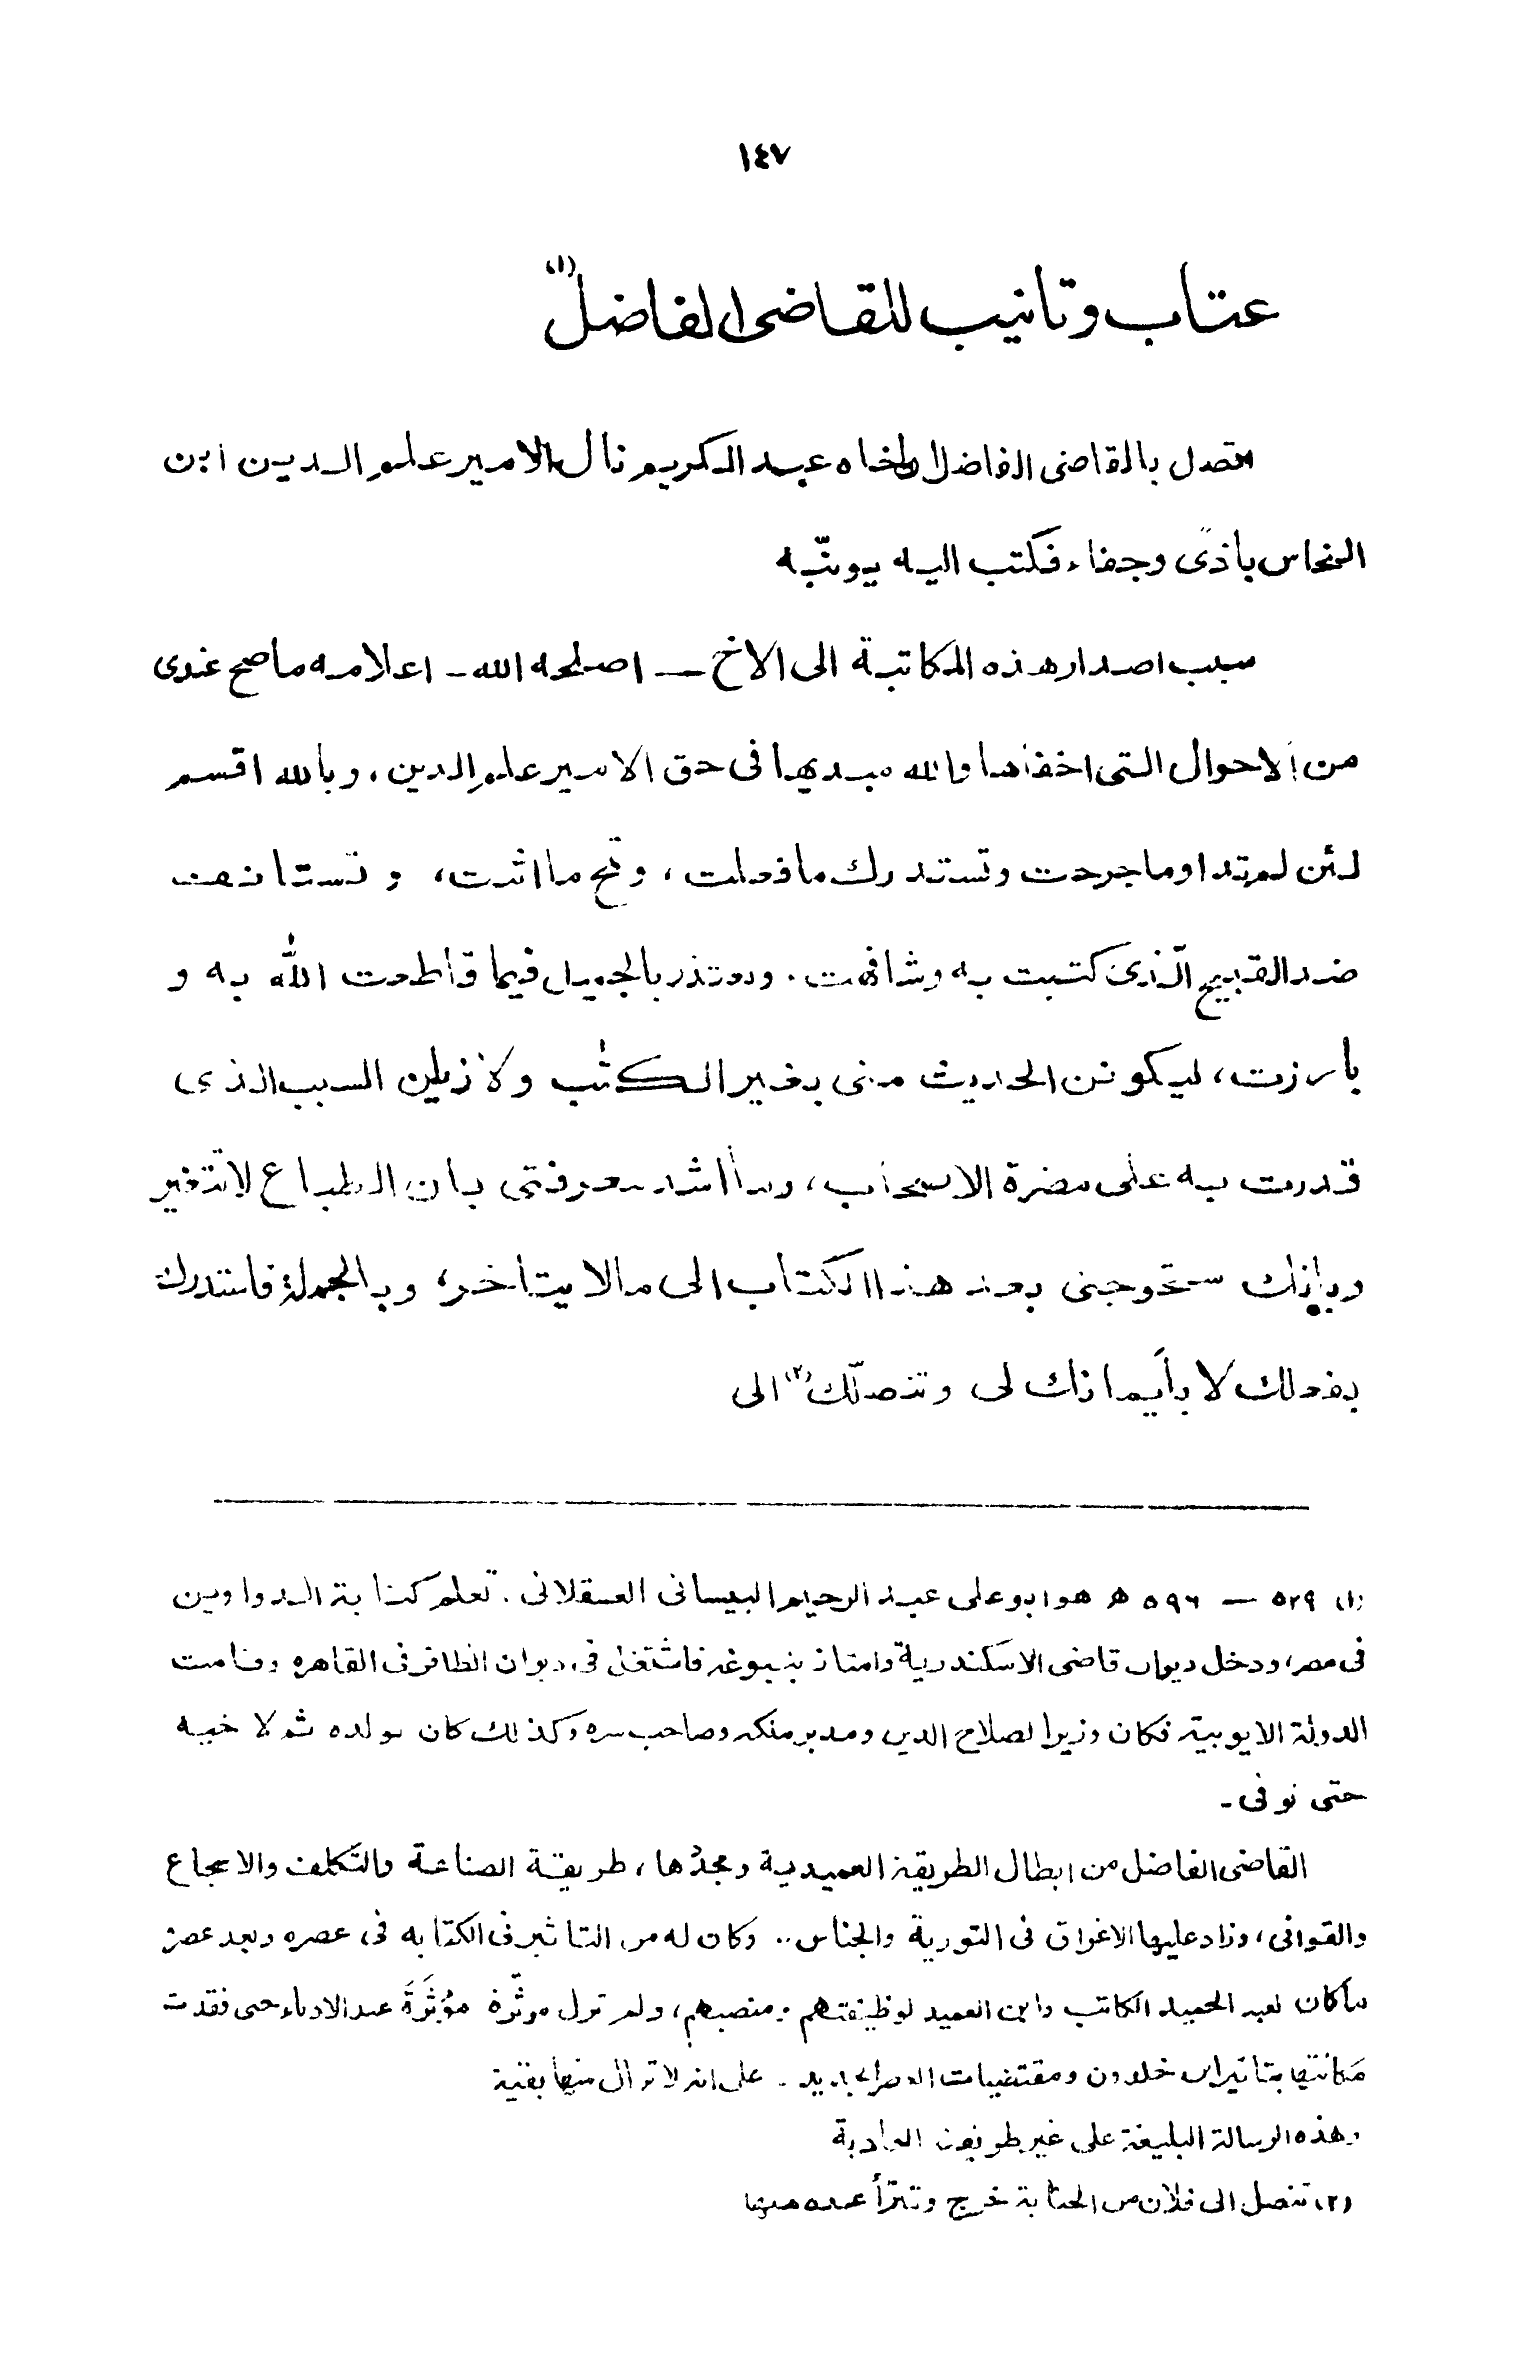 ١٤٧
عتاب وتانيب للقاضى الفاضل (١)
اتصل بالقاضى الفاضل ان اخاه عبد الكريم نال الامير علم الدين ابن
النحاس بأذًى وجفاء فكتب اليه يونّبه
سبب اصدار هذه المكاتبة الى الاخ — اصلحه الله - اعلامه ما صح عندى
من الاحوال التى اخفاها والله مبديها فى حق الامير علم الدين، وبالله اقسم
لئن لم تداو ما جرحت وتستدرك ما فعلت، وتمح ما اثرت، وتستأنف
ضد القبيح الّذى كتبت به وشافهت. وتعتذر بالجميل فيما قاطعت اللّه به و
بارزت، ليكونن الحديث منى بغير الكتب ولأزيلن السبب الذى
قدرت به على مضرة الاصحاب، وما أشد معرفتى بان الطباع لا تتغير
وبأنك ستحوجنى بعد هذا الكتاب الى ما لا يتأخر، وبالجملة فاستدرك
بفعلك لا بأيمانك لى وتنصلّك (٢) الى
(١) ٥٢٩ — ٥٩٦ ھ هو ابو على عبد الرحيم البيسانى العسقلانى. تعلم كتابة الدواوين
فى مصر، ودخل ديوان قاضى الاسكندرية وامتاز بنبوغه فاشتغل فى ديوان الظافر فى القاهره وقامت
الدولة الايوبية فكان وزيرا لصلاح الدين ومدبر ملكه وصاحب سره وكذلك كان لولده ثم لاخيه
حتى توفى -
القاضى الفاضل من ابطال الطريقة العميدية ومجدّدها، طريقة الصناعة والتكلف والاسجاع
والقوافى، وزاد عليها الاغراق فى التورية والجناس.. وكان له من التاثير فى الكتابه فى عصره وبعد عصره
ما كان لعبد الحميد الكاتب وابن العميد لوظيفتهم ومنصبهم، ولم تزل موثّرة مؤثَرَةً عند الادباء حتى فقدت
مكانتها بتاثير ابن خلدون ومقتضيات العصر الجديد. على انه لا تزال منها بقية
وهذه الرسالة البليغة على غير طريقته العادية
(٢) تنصل الى فلان من الجناية خرج وتبرّأ عنده منها